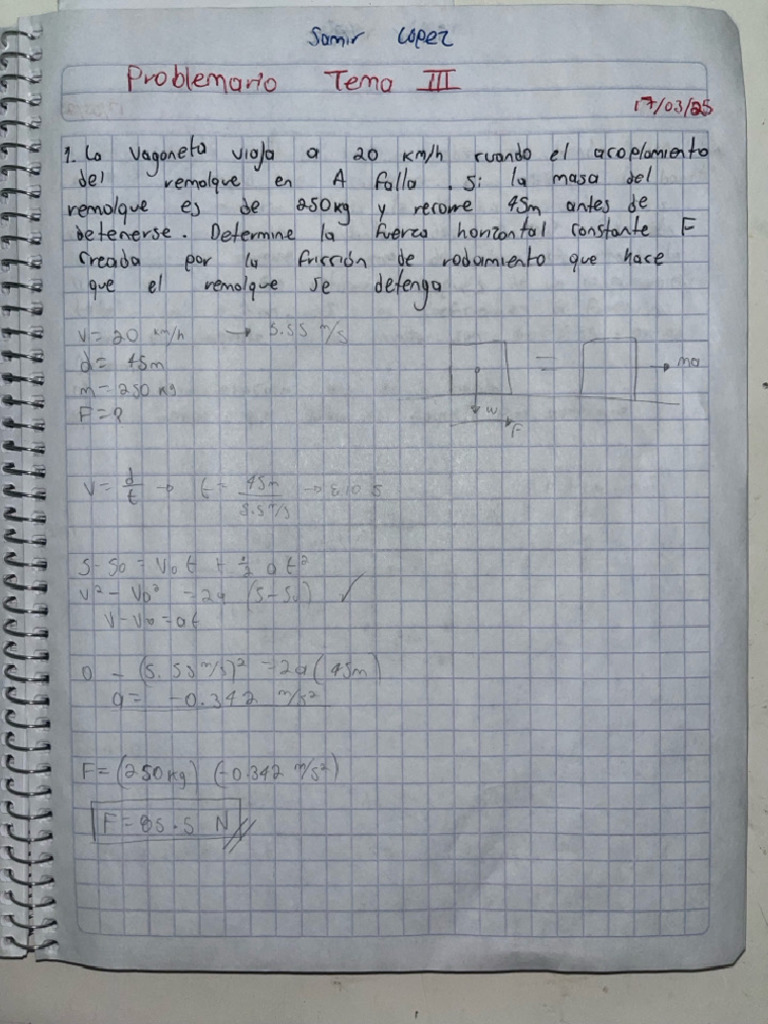 Samir Lopez
Problemario Tema III
17/03/25
1. La vagoneta viaja a 20 km/h cuando el acoplamiento
del remolque en A falla. Si la masa del
remolque es de 250kg y recorre 45m antes de
detenerse. Determine la fuerza horizontal constante F
creada por la fricción de rodamiento que hace
que el remolque se detenga
V= 20 km/h → 5.55 m/s
d= 45m
m= 250 kg
F= ?
= ma
w
F
V= d/t → t= 45m/5.5 m/s → 8.10 s
S-So = Vo t + 1/2 a t²
V² - Vo² = 2a (S-So) ✓
V-Vo = at
0 - (5.55 m/s)² = 2a (45m)
a= -0.342 m/s²
F= (250kg) (-0.342 m/s²)
F= 85.5 N